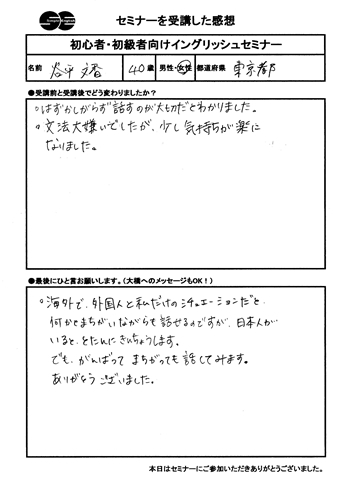 セミナーを受講した感想
初心者・初級者向けイングリッシュセミナー
名前 谷平 文香 40歳 男性・女性 都道府県 東京都
●受講前と受講後でどう変わりましたか？
○はずかしがらず話すのが大切だとわかりました。
○文法大嫌いでしたが、少し気持ちが楽に
なりました。
●最後にひと言お願いします。（大橋へのメッセージもOK！）
○海外で、外国人と私だけのシチュエーションだと、
何かとまちがいながらも話せるのですが、日本人が
いると、とたんにきんちょうします。
でも、がんばって まちがっても話してみます。
ありがとうございました。
本日はセミナーにご参加いただきありがとうございました。